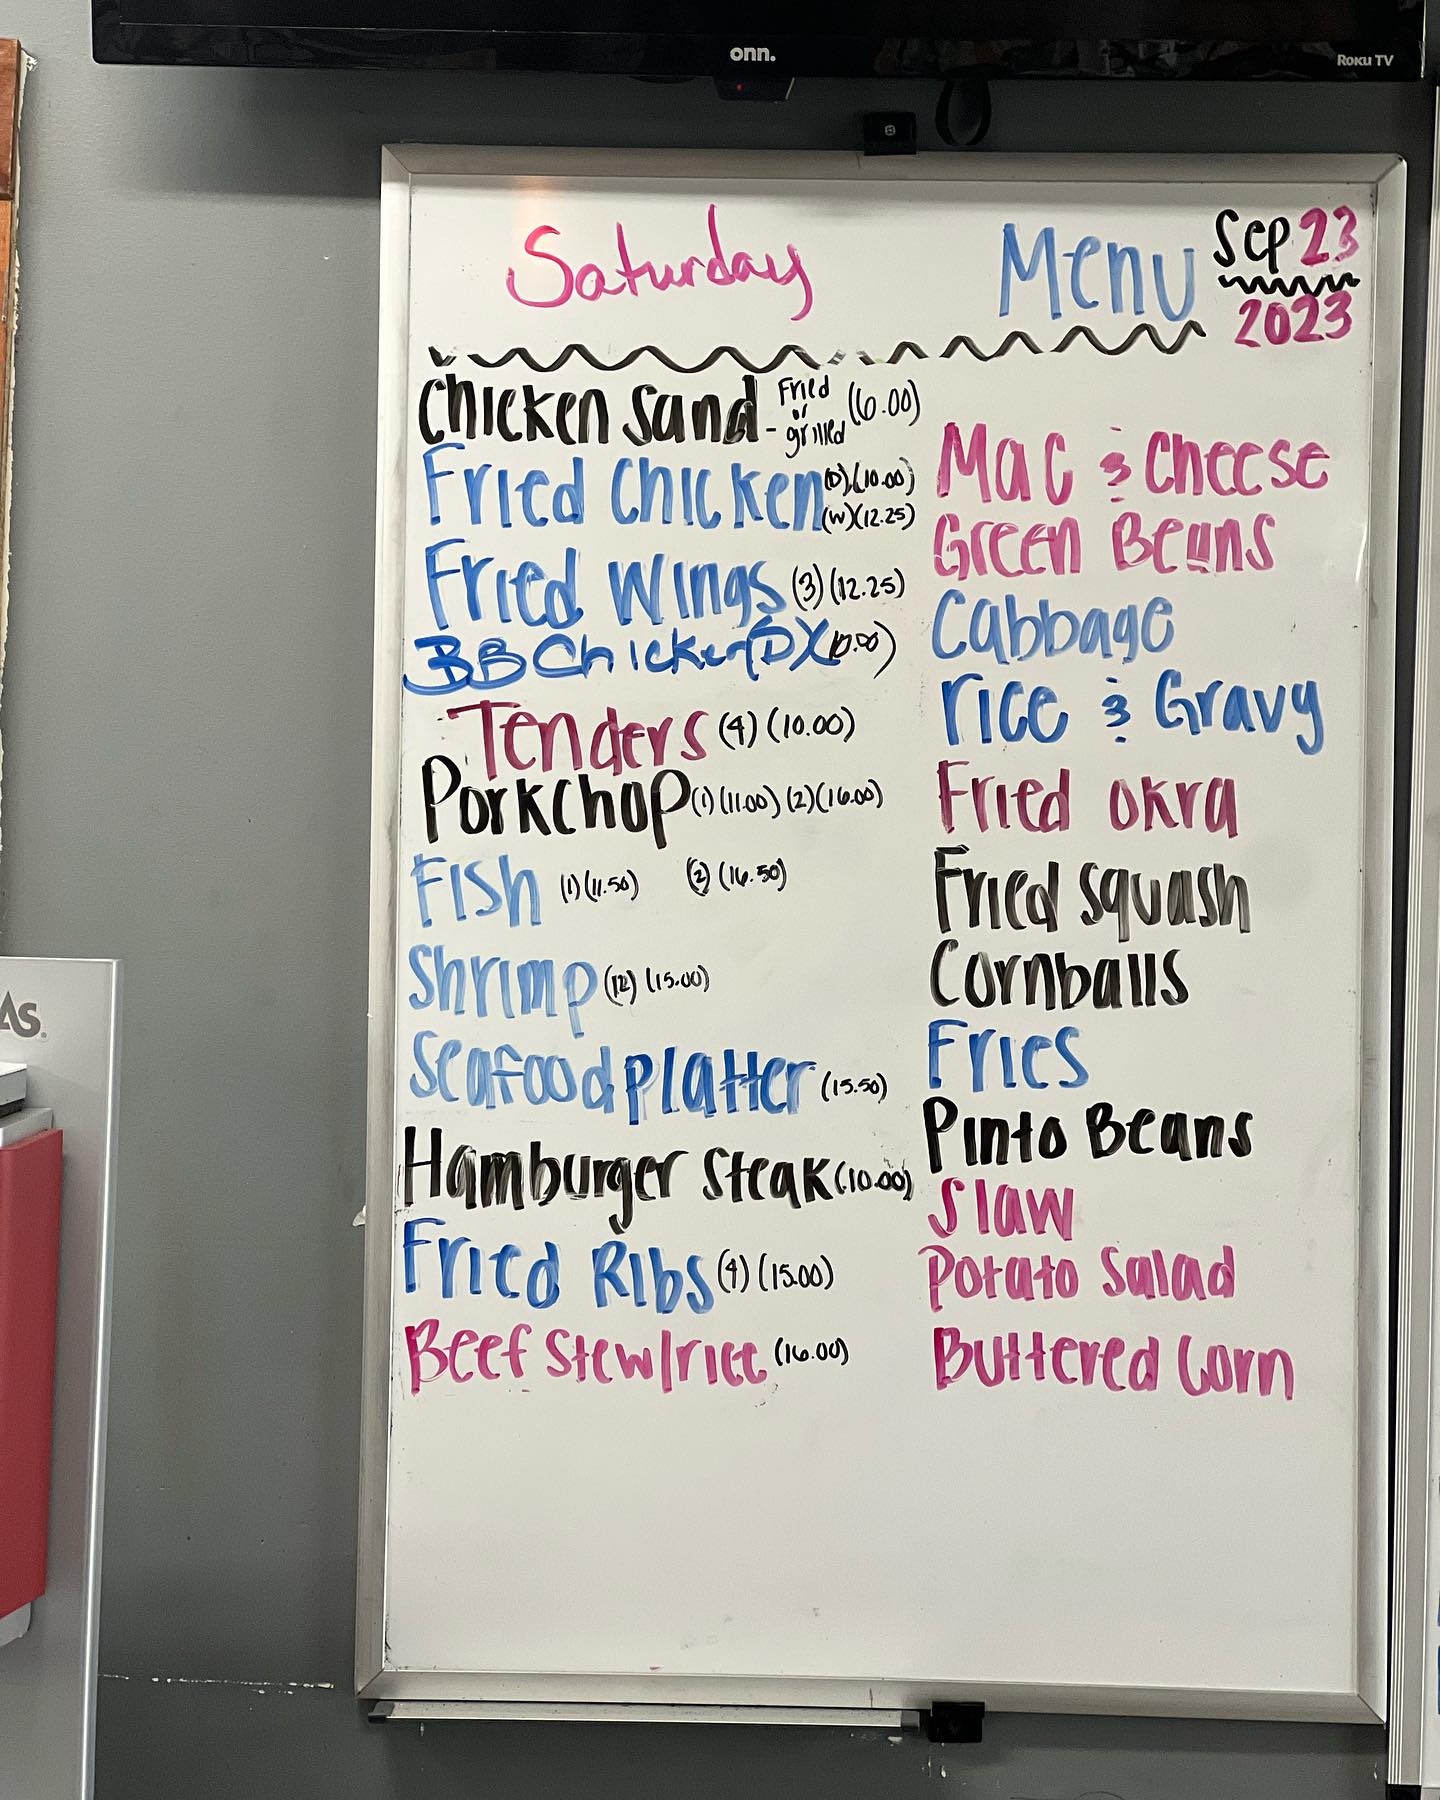 onn.
Roku TV
Saturday Menu Sep 23
2023
Chicken Sand - Fried or grilled (6.00)
Fried Chicken (D) (10.00)
(W) (12.25)
Fried Wings (3) (12.25)
BB Chicken (D) (10.00)
Tenders (4) (10.00)
Porkchop (1) (11.00) (2) (16.00)
Fish (1) (11.50) (2) (16.50)
Shrimp (12) (15.00)
Seafood platter (15.50)
Hamburger Steak (10.00)
Fried Ribs (4) (15.00)
Beef Stew/rice (16.00)
Mac & Cheese
Green Beans
Cabbage
rice & Gravy
Fried okra
Fried squash
Cornballs
Fries
Pinto Beans
Slaw
Potato Salad
Buttered Corn
AS.